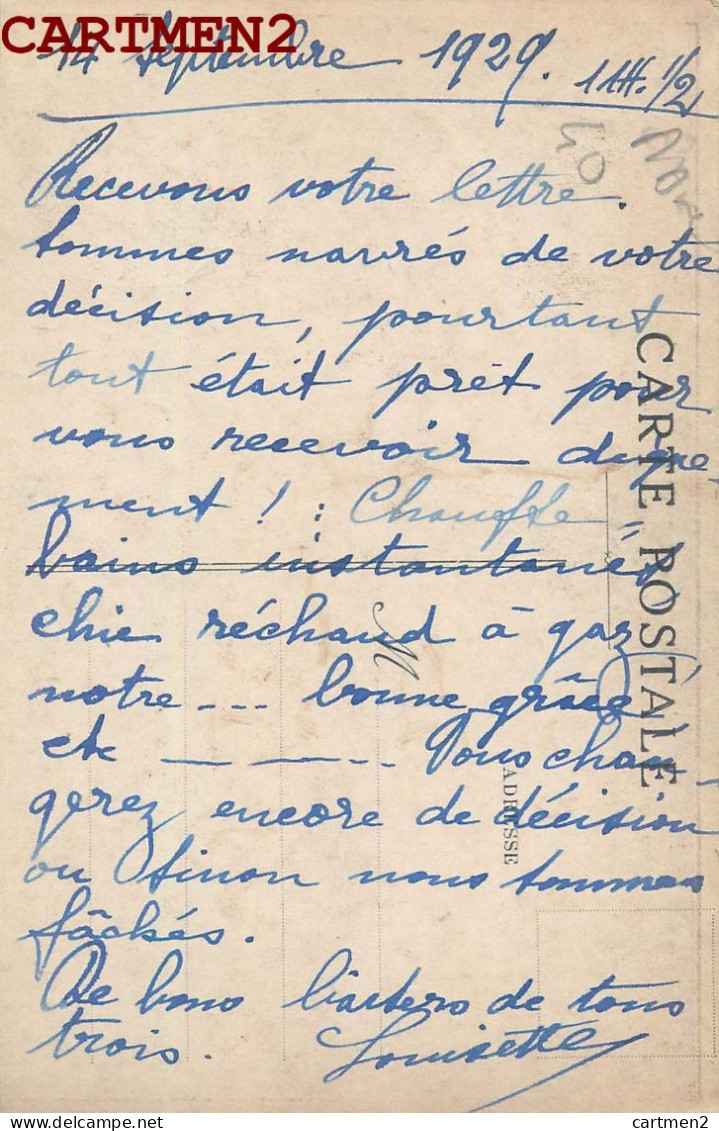 CARTMEN2
14 Septembre 1929. 11H. 1/2
Recevons votre lettre.
Sommes navrés de votre
décision, pourtant
tout était prêt pour
vous recevoir digne-
ment ! : Chauffe
bains instantanés
chic réchaud à gaz
notre --- bonne grâce
etc _ _ _ .. Vous chan-
gerez encore de décision
ou sinon nous sommes
fâchés.
De bons baisers de tous
trois. Louisette
40
CARTE POSTALE
M
ADRESSE
cartmen2